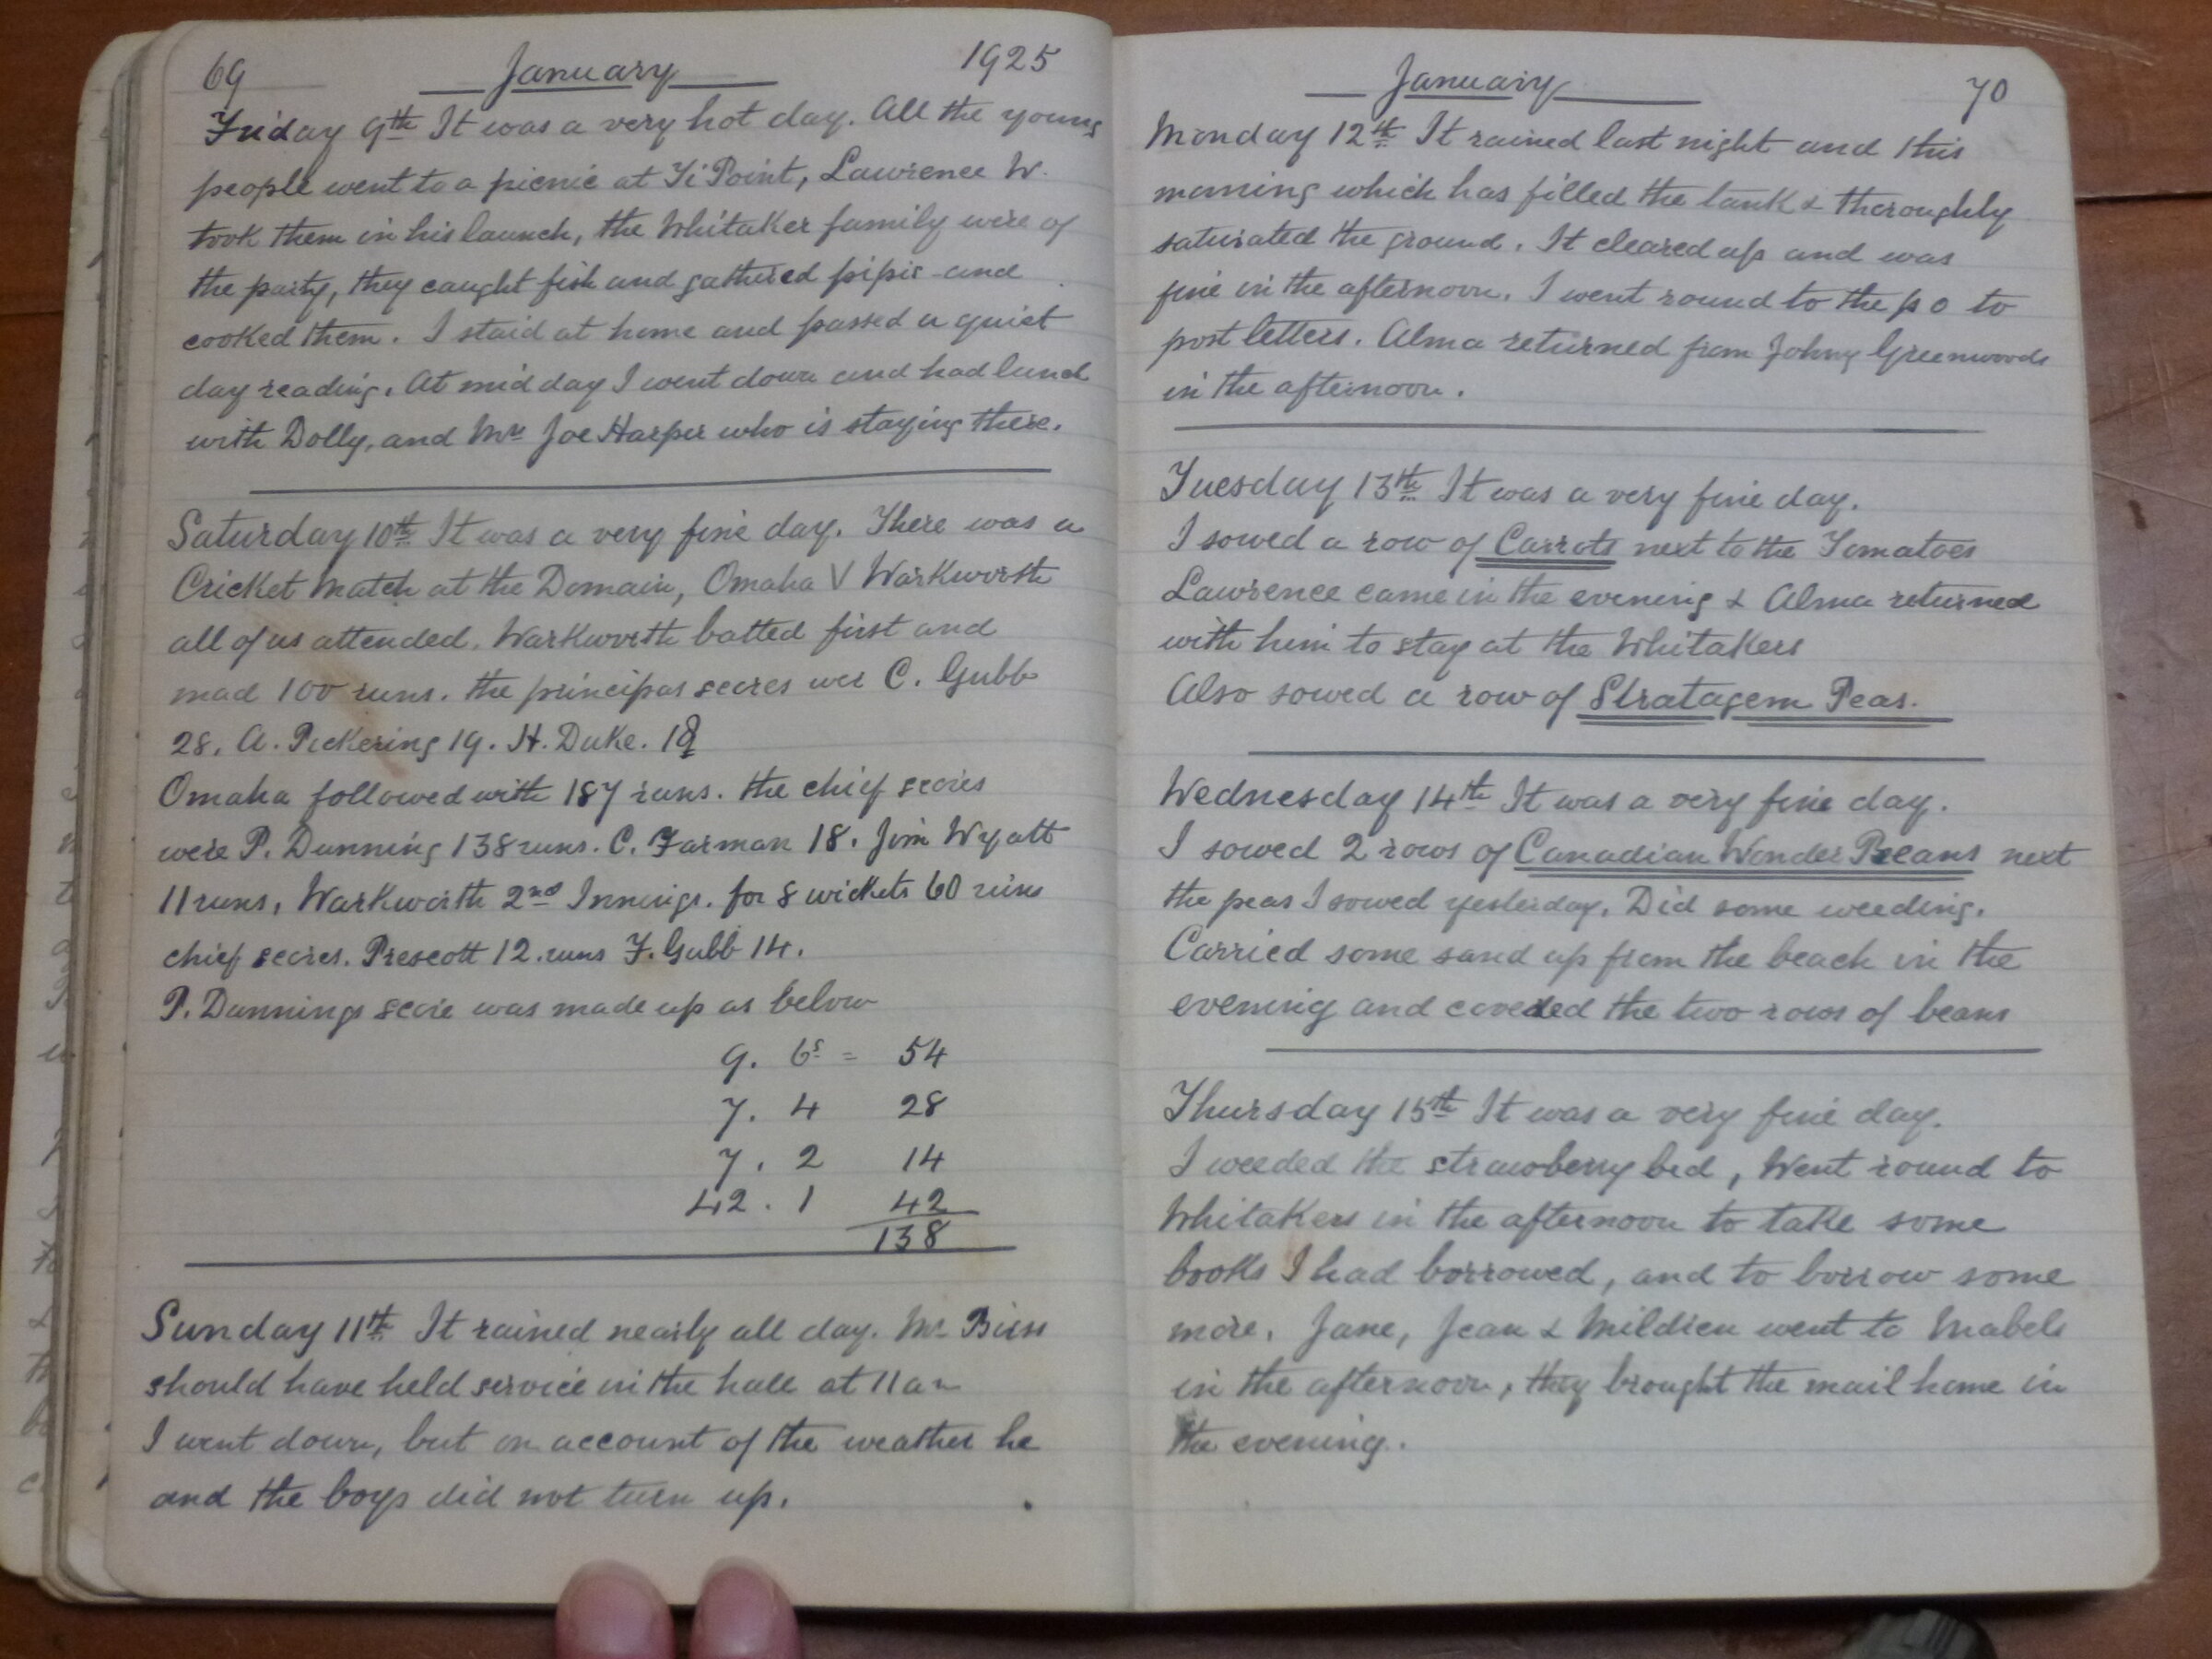 69 January 1925
Friday 9th It was a very hot day. All the young
people went to a picnic at Ti Point, Lawrence W.
took them in his launch, the Whitaker family were of
the party, they caught fish and gathered pipis and
cooked them. I staid at home and passed a quiet
day reading. At mid day I went down and had lunch
with Dolly, and Mrs Joe Harper who is staying there.
Saturday 10th It was a very fine day. There was a
Cricket Match at the Domain, Omaha V Warkworth
all of us attended. Warkworth batted first and
mad 100 runs. the principas scores wer C. Gubb
28. A. Pickering 19. H. Duke. 18
Omaha followed with 187 runs. the chief scores
were P. Dunning 138 runs. C. Farman 18. Jim Wyatt
11 runs, Warkworth 2nd Innings. for 8 wickets 60 runs
chief scores. Prescott 12. runs F. Gubb 14.
P. Dunnings score was made up as below
9. 6s = 54
7. 4 28
7. 2 14
42. 1 42
138
Sunday 11th It rained nearly all day. Mr
should have held service in the hall at 11 am
I went down, but on account of the weather he
and the boys did not turn up.
January 70
Monday 12th It rained last night and this
morning which has filled the tank & thoroughly
saturated the ground. It cleared up and was
fine in the afternoon. I went round to the p o to
post letters. Alma returned from Johny Greenwoods
in the afternoon.
Tuesday 13th It was a very fine day.
I sowed a row of Carrots next to the Tomatoes
Lawrence came in the evening & Alma returned
with him to stay at the Whitakers
Also sowed a row of Stratagem Peas.
Wednesday 14th It was a very fine day.
I sowed 2 rows of Canadian Wonder Beans next
the peas I sowed yesterday. Did some weeding.
Carried some sand up from the beach in the
evening and coveded the two rows of beans
Thursday 15th It was a very fine day.
I weeded the strawberry bed, Went round to
Whitakers in the afternoon to take some
books I had borrowed, and to borrow some
more. Jane, Jean & Mildred went to Mabels
in the afternoon, they brought the mail home in
the evening.